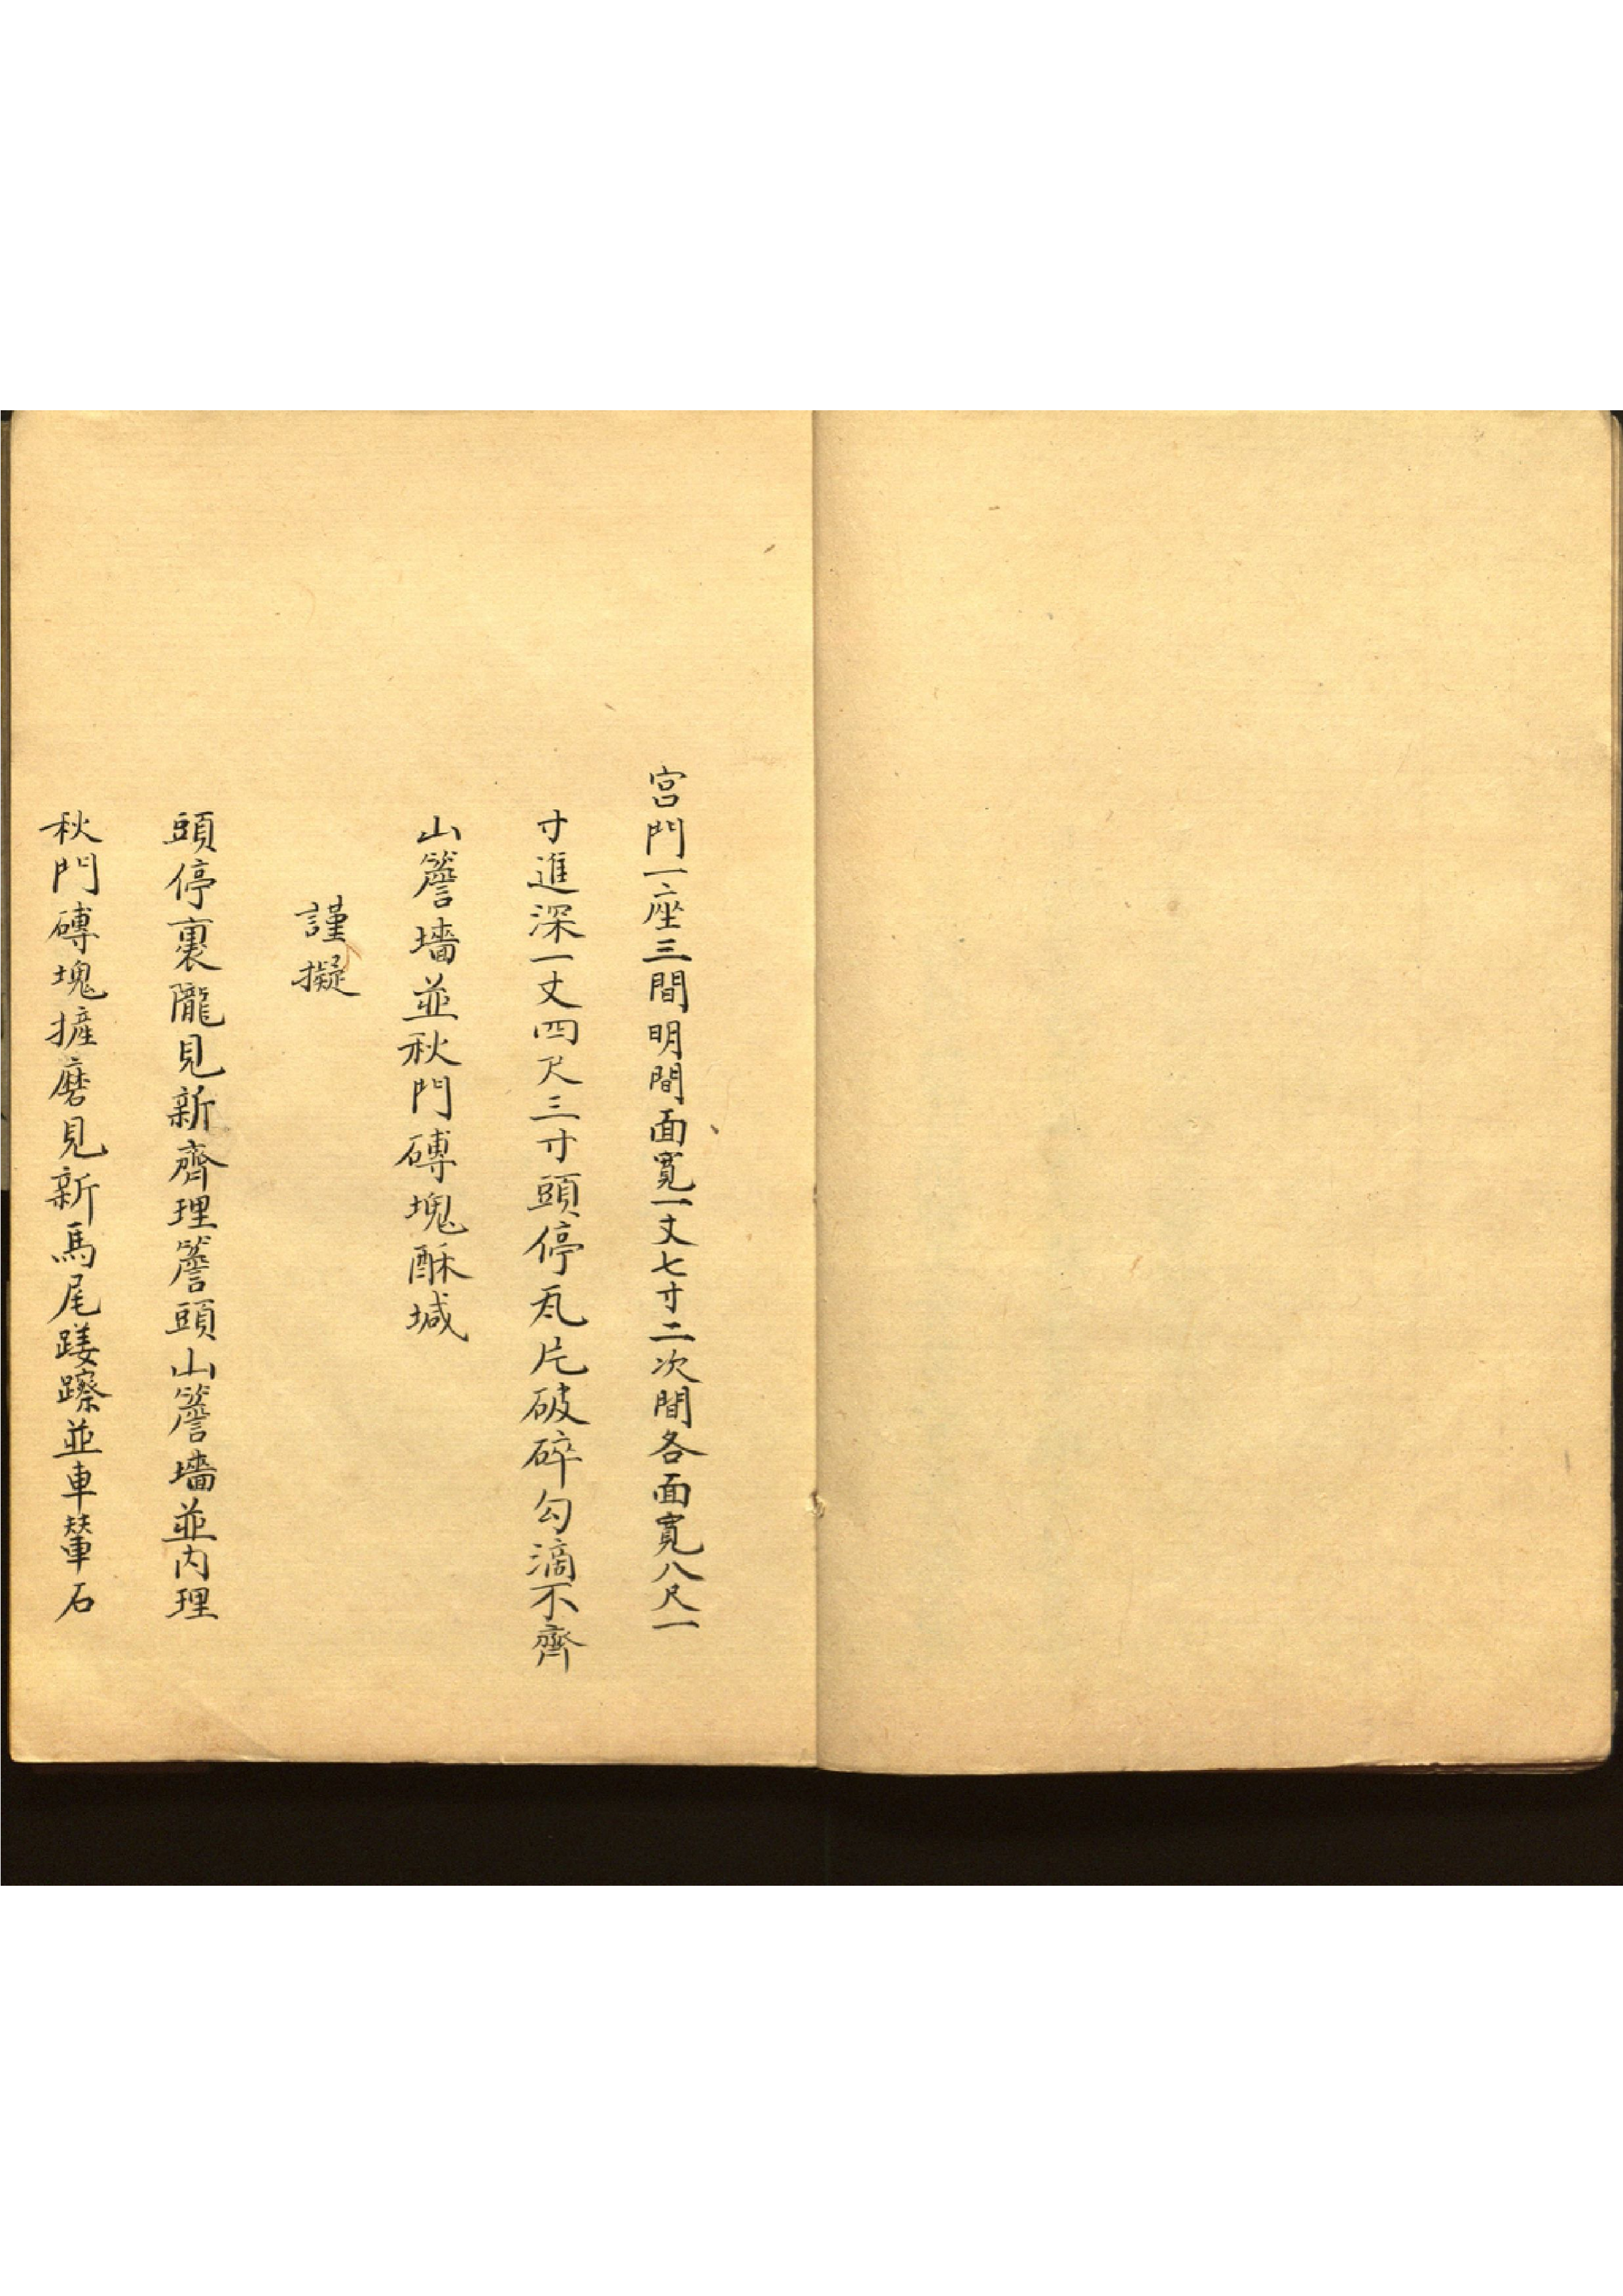 宮門一座三間明間面寬一丈七寸二次間各面寬八尺一
寸進深一丈四尺三寸頭停瓦片破碎勾滴不齊
山簷墻並秋門磚塊酥堿
謹擬
頭停裹隴見新齊理簷頭山簷墻並內理
秋門磚塊摌磨見新馬尾蹉䠕並車輦石